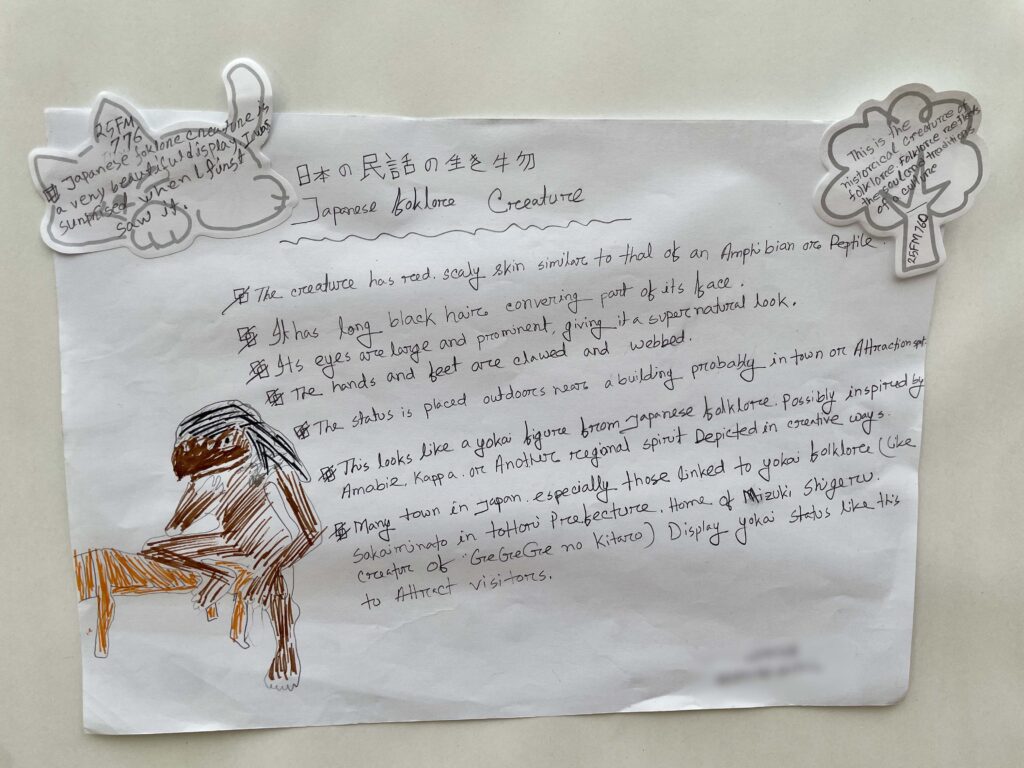 25FM
776
Japanese foklore Creature is
a very beautiful display I was
surprised when I first
saw it.
This is the
historical creature of
folklore. Folklore reflects
the soul and traditions
of a culture
25FM760
日本の民話の生き牛勿
Japanese foklore Creature
The creature has red. scaly skin similar to that of an Amphibian or Reptile.
It has long black hair convering part of its face.
Its eyes are large and prominent, giving it a supernatural look.
The hands and feet are clawed and webbed.
The status is placed outdoors near a building probably in town or Attraction spt.
This looks like a yokai figure from Japanese folklore. Possibly inspired by
Amabie, Kappa. or Another regional spirit Depicted in creative ways.
Many town in Japan. especially those linked to yokai folklore (like
Sakaiminato in tottori Prefecture. Home of Mizuki Shigeru.
creator of "GeGeGe no Kitaro) Display yokai status like this
to Attract visitors.